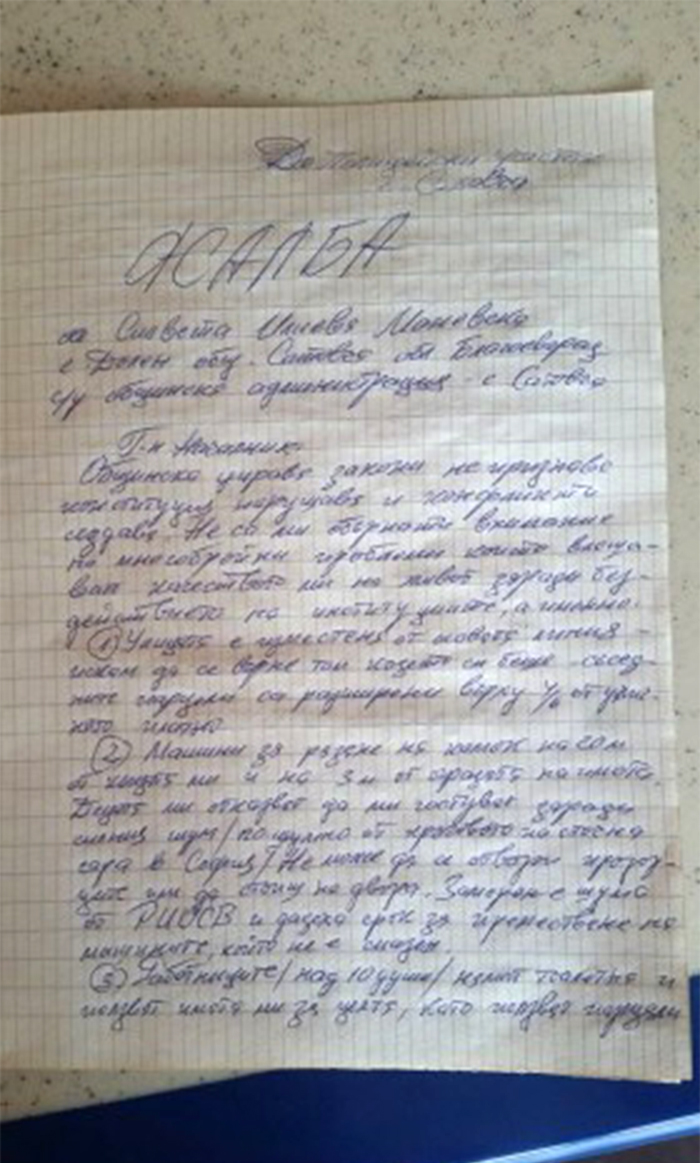 До Полицейски участък
с. Сатовча
ЖАЛБА
от Силвета Илиева
с Долен общ. Сатовча обл. Благоевград
с/у общинска администрация - с Сатовча
Г-н Началник
Общинска управа закони не признава
конституция нарушава и конфликти
създава. Не са ми обърнати внимание
на многобройни проблеми които влоша-
ват качеството ми на живот заради без-
действието на институциите, а именно:
① Улицата е изместена от новата линия -
искам да се върне там където си беше - съсед-
ните са разширени върху от
имот
② Машини за рязане на камък на 20м
от къщата ми и на 3м от оградата на имота.
Децата ми отказват да ми гостуват заради
силния шум /по шумно от на
гара в София/ Не може да се отворят прозор-
ците или да стоиш на двора. Замерен е шума
от РИОСВ и дадоха срок за преместване на
машините, който не е спазен.
③ Работниците /над 10 души/ нямат тоалетна и
ползват имота ми за целта, като ползват